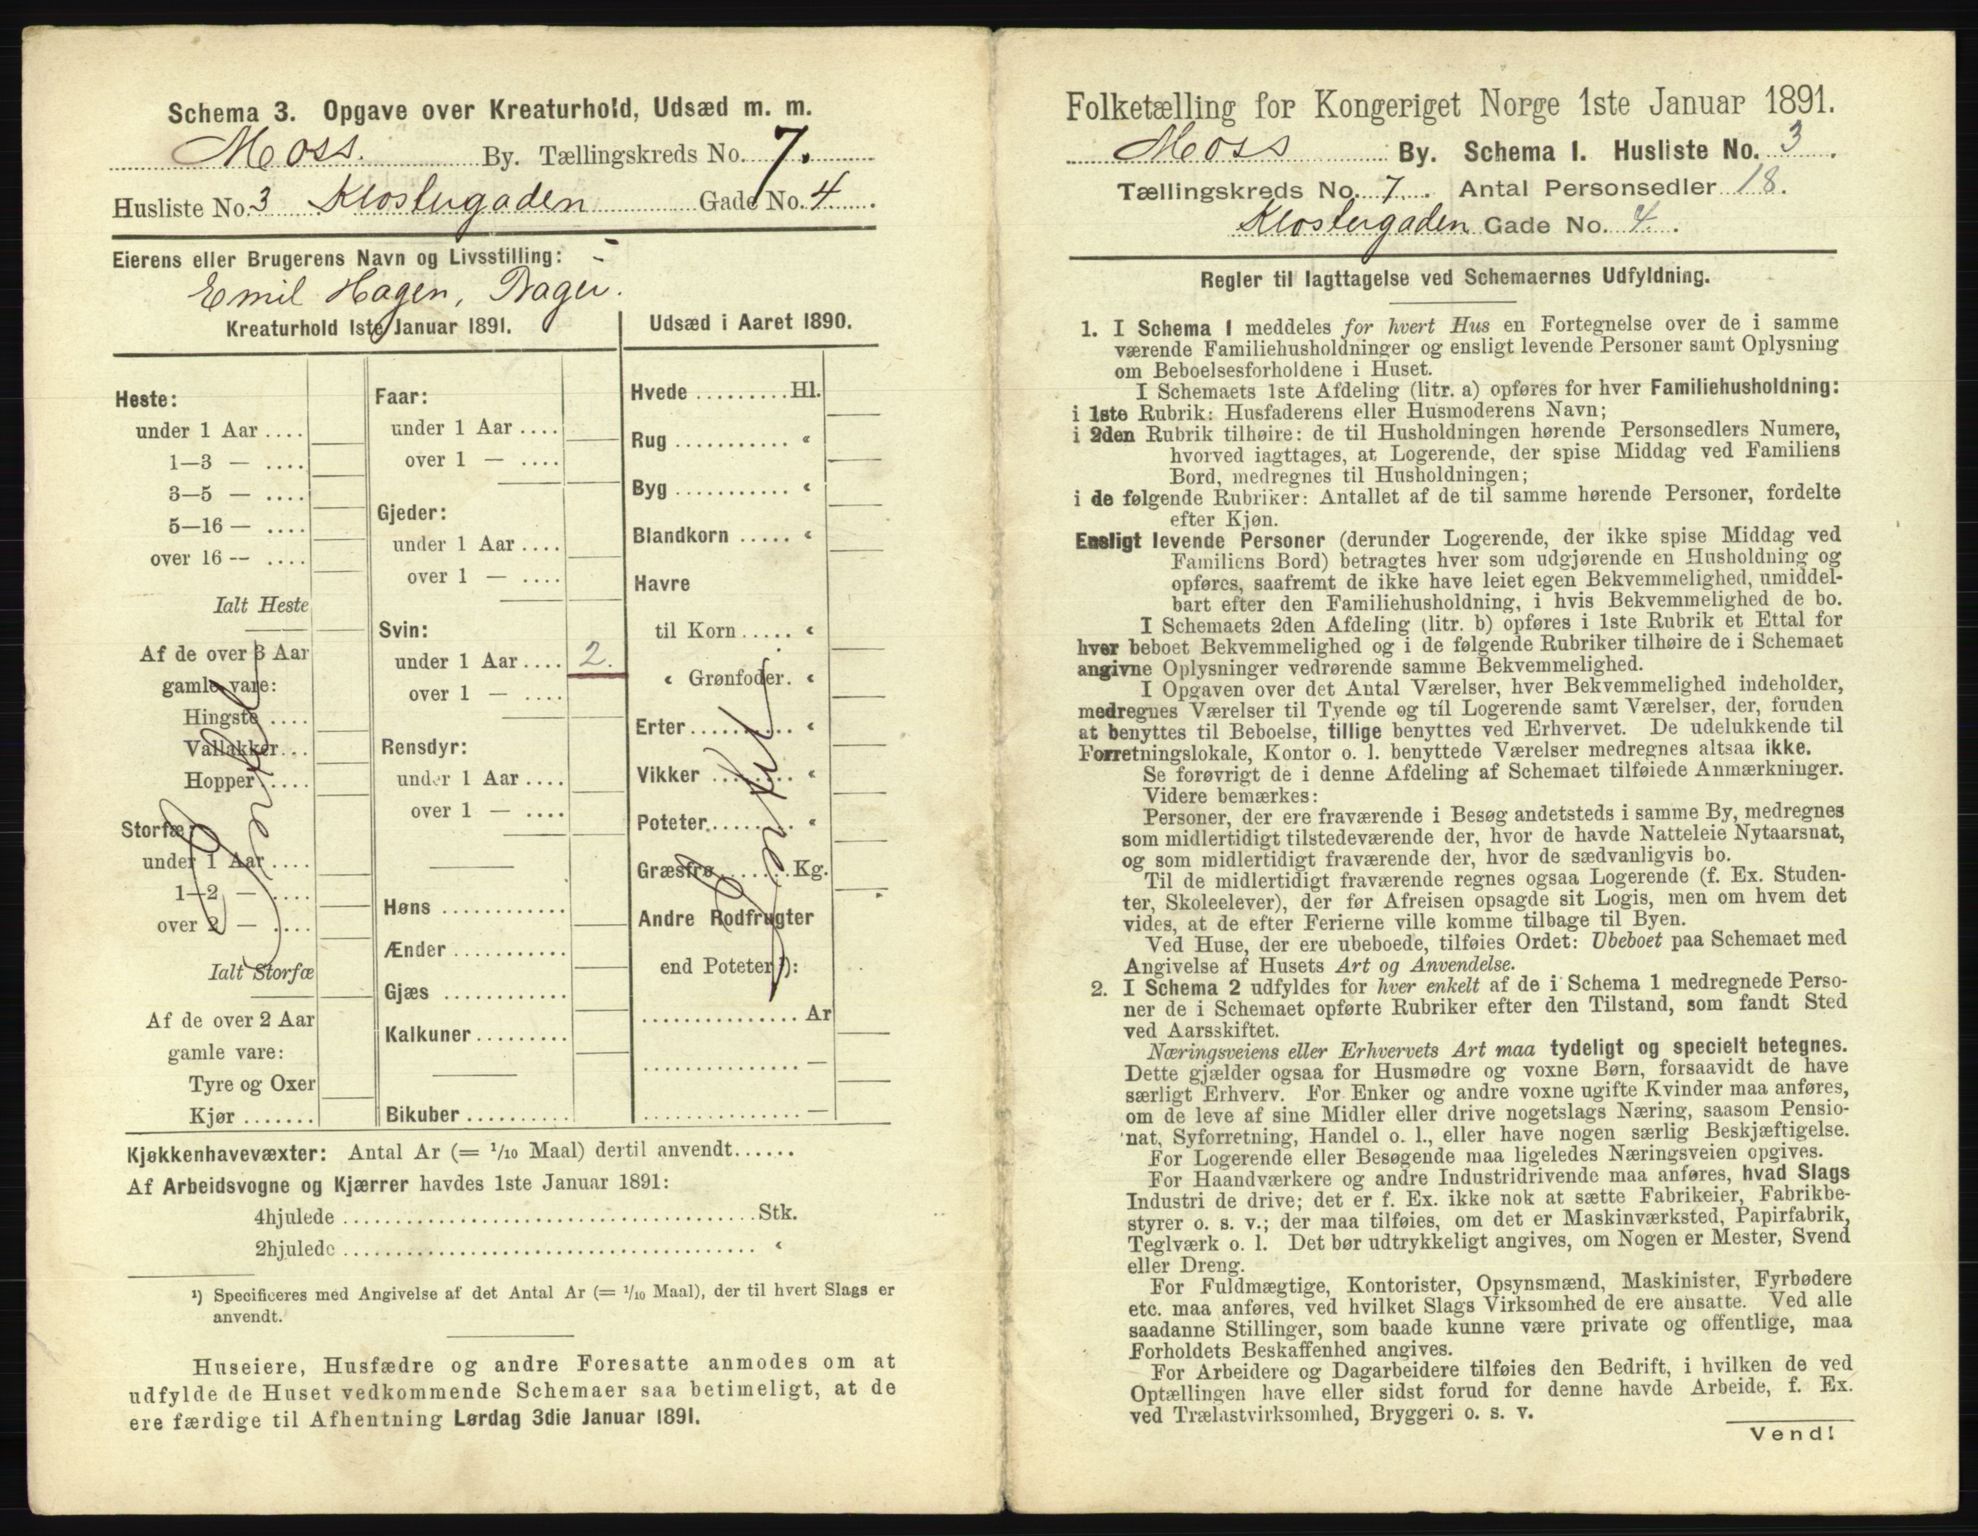 Schema 3. Opgave over Kreaturhold, Udsæd m. m.
Moss. By. Tællingskreds No. 7.
Husliste No. 3 Klostergaden Gade No. 4.
Eierens eller Brugerens Navn og Livsstilling:
Emil Hagen,
Kreaturhold 1ste Januar 1891.
Heste:
under 1 Aar ....
1—3 — ....
3—5 — ....
5—16 — ....
over 16 — ....
Ialt Heste
Af de over 3 Aar
gamle vare:
Hingste ....
Vallakker...
Hopper ....
Storfæ:
under 1 Aar ....
1—2 — ....
over 2 — ....
Ialt Storfæ
Af de over 2 Aar
gamle vare:
Tyre og Oxer
Kjør .......
Faar:
under 1 Aar ....
over 1 — ....
Gjeder:
under 1 Aar ....
over 1 — ....
Svin:
under 1 Aar .... 2.
over 1 — ....
Rensdyr:
under 1 Aar ....
over 1 — ....
Høns ............
Ænder ...........
Gjæs ............
Kalkuner .........
Bikuber ..........
Udsæd i Aaret 1890.
Hvede ......... Hl.
Rug ........... "
Byg ........... "
Blandkorn ..... "
Havre
til Korn ..... "
" Grønfoder. "
Erter .......... "
Vikker ........ "
Poteter ........ "
Græsfrø ....... Kg.
Andre Rodfrugter
end Poteter ¹):
............... Ar
............... —
............... —
Kjøkkenhavevæxter: Antal Ar (= 1/10 Maal) dertil anvendt......
Af Arbeidsvogne og Kjærrer havdes 1ste Januar 1891:
4hjulede ........................................ Stk.
2hjulede ........................................ "
¹) Specificeres med Angivelse af det Antal Ar (= 1/10 Maal), der til hvert Slags er
anvendt.
Huseiere, Husfædre og andre Foresatte anmodes om at
udfylde de Huset vedkommende Schemaer saa betimeligt, at de
ere færdige til Afhentning Lørdag 3die Januar 1891.
Folketælling for Kongeriget Norge 1ste Januar 1891.
Moss By. Schema 1. Husliste No. 3.
Tællingskreds No. 7. Antal Personsedler 18.
Klostergaden Gade No. 4.
Regler til Iagttagelse ved Schemaernes Udfyldning.
1. I Schema 1 meddeles for hvert Hus en Fortegnelse over de i samme
værende Familiehusholdninger og ensligt levende Personer samt Oplysning
om Beboelsesforholdene i Huset.
I Schemaets 1ste Afdeling (litr. a) opføres for hver Familiehusholdning:
i 1ste Rubrik: Husfaderens eller Husmoderens Navn;
i 2den Rubrik tilhøire: de til Husholdningen hørende Personsedlers Numere,
hvorved iagttages, at Logerende, der spise Middag ved Familiens
Bord, medregnes til Husholdningen;
i de følgende Rubriker: Antallet af de til samme hørende Personer, fordelte
efter Kjøn.
Ensligt levende Personer (derunder Logerende, der ikke spise Middag ved
Familiens Bord) betragtes hver som udgjørende en Husholdning og
opføres, saafremt de ikke have leiet egen Bekvemmelighed, umiddel-
bart efter den Familiehusholdning, i hvis Bekvemmelighed de bo.
I Schemaets 2den Afdeling (litr. b) opføres i 1ste Rubrik et Ettal for
hver beboet Bekvemmelighed og i de følgende Rubriker tilhøire de i Schemaet
angivne Oplysninger vedrørende samme Bekvemmelighed.
I Opgaven over det Antal Værelser, hver Bekvemmelighed indeholder,
medregnes Værelser til Tyende og til Logerende samt Værelser, der, foruden
at benyttes til Beboelse, tillige benyttes ved Erhvervet. De udelukkende til
Forretningslokale, Kontor o. l. benyttede Værelser medregnes altsaa ikke.
Se forøvrigt de i denne Afdeling af Schemaet tilføiede Anmærkninger.
Videre bemærkes:
Personer, der ere fraværende i Besøg andetsteds i samme By, medregnes
som midlertidigt tilstedeværende der, hvor de havde Natteleie Nytaarsnat,
og som midlertidigt fraværende der, hvor de sædvanligvis bo.
Til de midlertidigt fraværende regnes ogsaa Logerende (f. Ex. Studen-
ter, Skoleelever), der før Afreisen opsagde sit Logis, men om hvem det
vides, at de efter Ferierne ville komme tilbage til Byen.
Ved Huse, der ere ubeboede, tilføies Ordet: Ubeboet paa Schemaet med
Angivelse af Husets Art og Anvendelse.
2. I Schema 2 udfyldes for hver enkelt af de i Schema 1 medregnede Perso-
ner de i Schemaet opførte Rubriker efter den Tilstand, som fandt Sted
ved Aarsskiftet.
Næringsveiens eller Erhvervets Art maa tydeligt og specielt betegnes.
Dette gjælder ogsaa for Husmødre og voxne Børn, forsaavidt de have
særligt Erhverv. For Enker og andre voxne ugifte Kvinder maa anføres,
om de leve af sine Midler eller drive nogetslags Næring, saasom Pensio-
nat, Syforretning, Handel o. l., eller have nogen særlig Beskjæftigelse.
For Logerende eller Besøgende maa ligeledes Næringsveien opgives.
For Haandværkere og andre Industridrivende maa anføres, hvad Slags
Industri de drive; det er f. Ex. ikke nok at sætte Fabrikeier, Fabrikbe-
styrer o. s. v.; der maa tilføies, om det er Maskinværksted, Papirfabrik,
Teglværk o. l. Det bør udtrykkeligt angives, om Nogen er Mester, Svend
eller Dreng.
For Fuldmægtige, Kontorister, Opsynsmænd, Maskinister, Fyrbødere
etc. maa anføres, ved hvilket Slags Virksomhed de ere ansatte. Ved alle
saadanne Stillinger, som baade kunne være private og offentlige, maa
Forholdets Beskaffenhed angives.
For Arbeidere og Dagarbeidere tilføies den Bedrift, i hvilken de ved
Optællingen have eller sidst forud for denne havde Arbeide, f. Ex.
ved Trælastvirksomhed, Bryggeri o. s. v.
Vend!